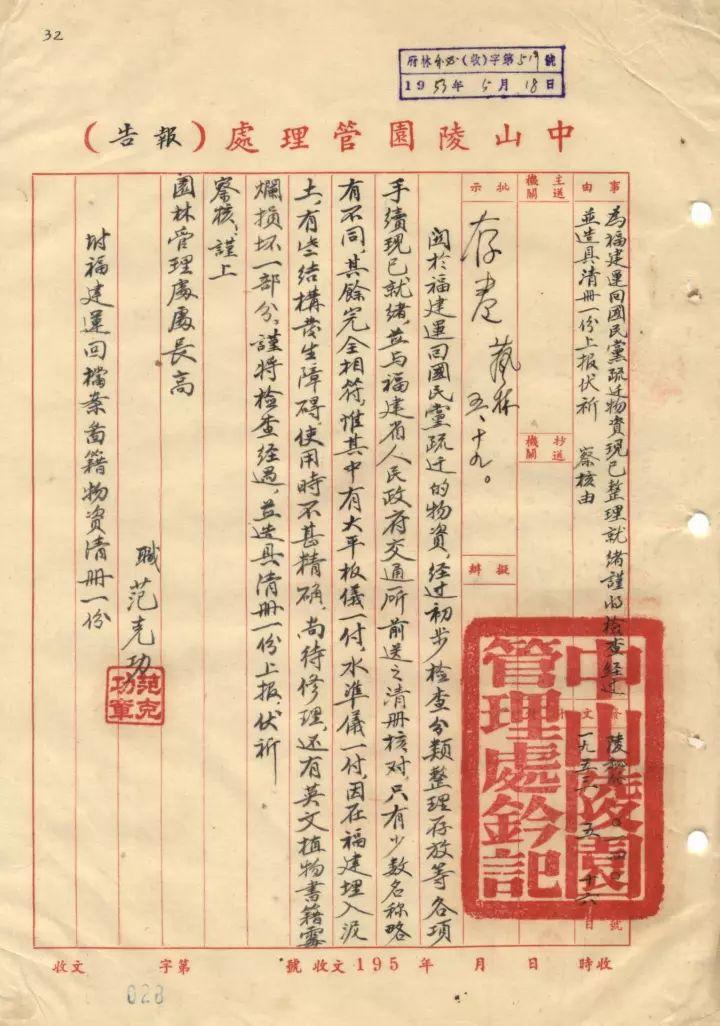 32
府林 (收)字第519號
1953年5月18日
中山陵園管理處(報告)
事由
為福建運回國民黨疏迁物資現已整理就緒謹将檢查經过
並造具清册一份上报伏祈 察核由
主送機關
抄送機關
批示
存查
五、十九。
擬辦
發文
陵
一九五三 五 十六
號
日
關於福建運回國民黨疏迁的物資,經过初步檢查分類整理存放等各項
手續現已就緒,並与福建省人民政府交通所前送之清册核对,只有少数名称略
有不同,其餘完全相符,惟其中有大平板儀一付,水準儀一付,因在福建埋入泥
土,有些結構發生障碍,使用時不甚精确,尚待修理,还有英文植物書籍霉
爛損坏一部分,謹将檢查經過,並造具清册一份上報,伏祈
察核,謹上
園林管理處處長高
職 范克功
范克功章
附福建運回檔案啚籍物资清册一份
中山陵園管理處鈐記
收文 字第 號 收文195 年 月 日 時收
028